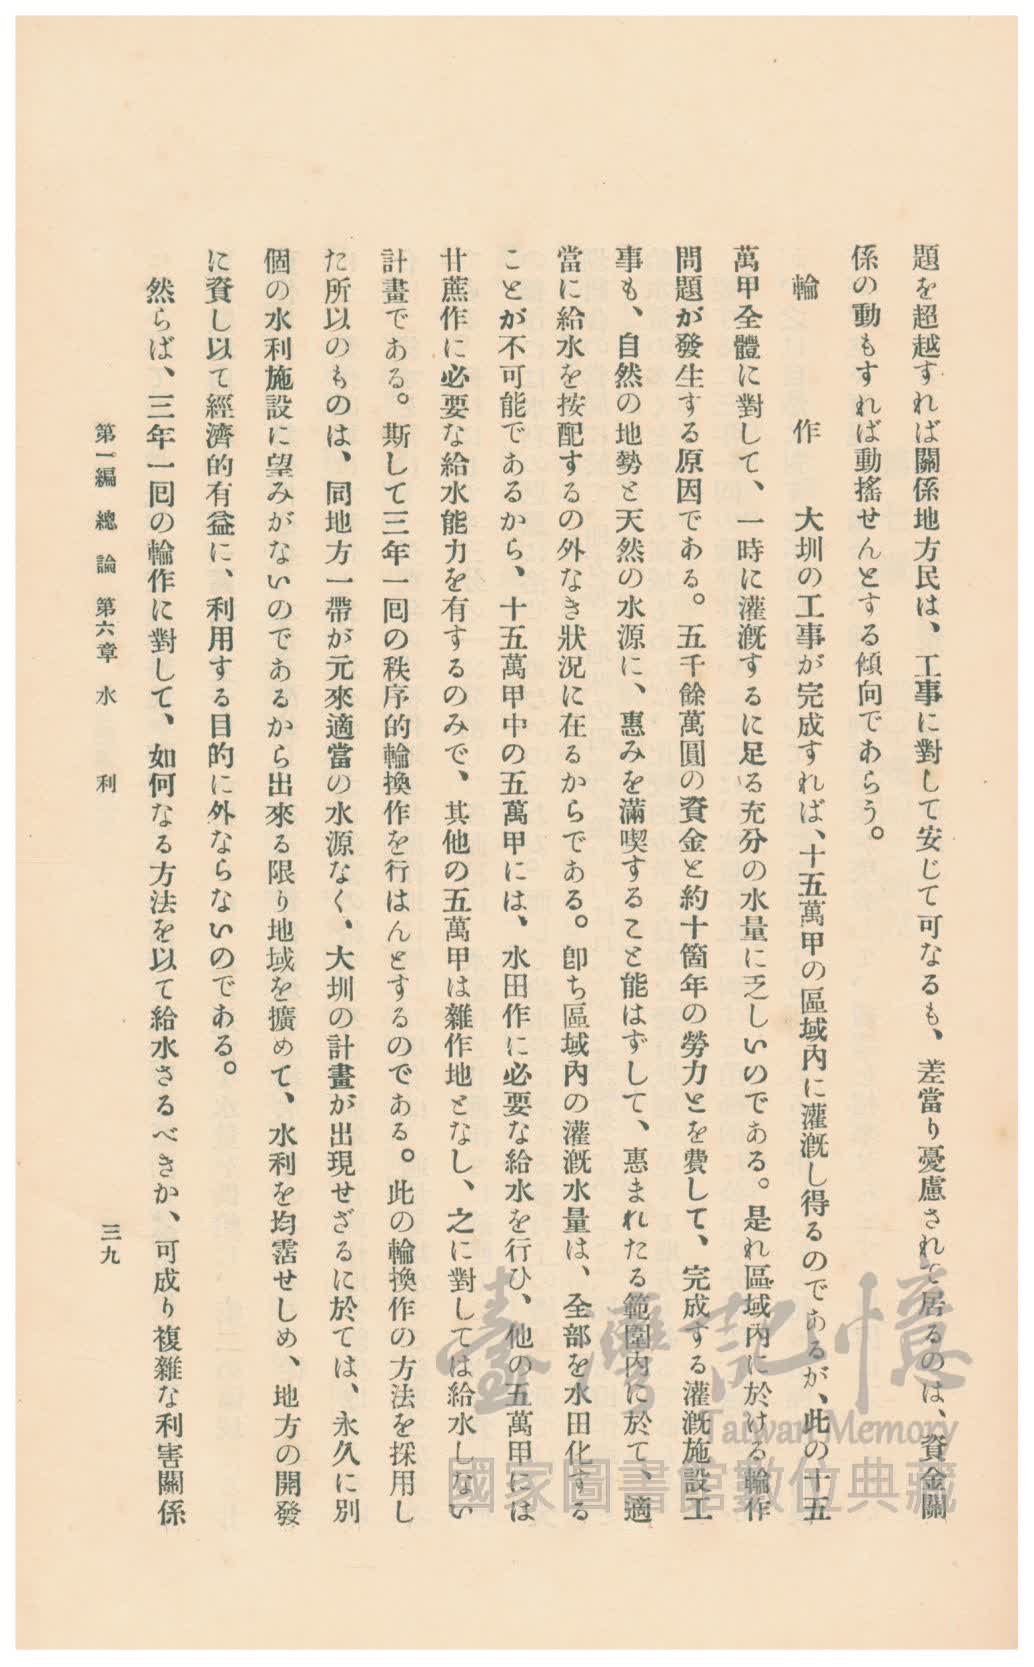 題を超越すれば關係地方民は、工事に對して安じて可なるも、差當り憂慮されて居るのは、資金關
係の動もすれば動搖せんとする傾向であらう。
輪　作　大圳の工事が完成すれば、十五萬甲の區域內に灌漑し得るのであるが、此の十五
萬甲全體に對して、一時に灌漑するに足る充分の水量に乏しいのである。是れ區域內に於ける輪作
問題が發生する原因である。五千餘萬圓の資金と約十箇年の勞力とを費して、完成する灌漑施設工
事も、自然の地勢と天然の水源に、惠みを滿喫すること能はずして、惠まれたる範圍內に於て、適
當に給水を按配するの外なき狀況に在るからである。卽ち區域內の灌漑水量は、全部を水田化する
ことが不可能であるから、十五萬甲中の五萬甲には、水田作に必要な給水を行ひ、他の五萬甲には
甘蔗作に必要な給水能力を有するのみで、其他の五萬甲は雜作地となし、之に對しては給水しない
計畫である。斯して三年一囘の秩序的輪換作を行はんとするのである。此の輪換作の方法を採用し
た所以のものは、同地方一帶が元來適當の水源なく、大圳の計畫が出現せざるに於ては、永久に別
個の水利施設に望みがないのであるから出來る限り地域を擴めて、水利を均霑せしめ、地方の開發
に資し以て經濟的有益に、利用する目的に外ならないのである。
然らば、三年一囘の輪作に對して、如何なる方法を以て給水さるべきか、可成り複雜な利害關係
第一編　總論　第六章　水利
三九
臺灣記憶
Taiwan Memory
國家圖書館數位典藏